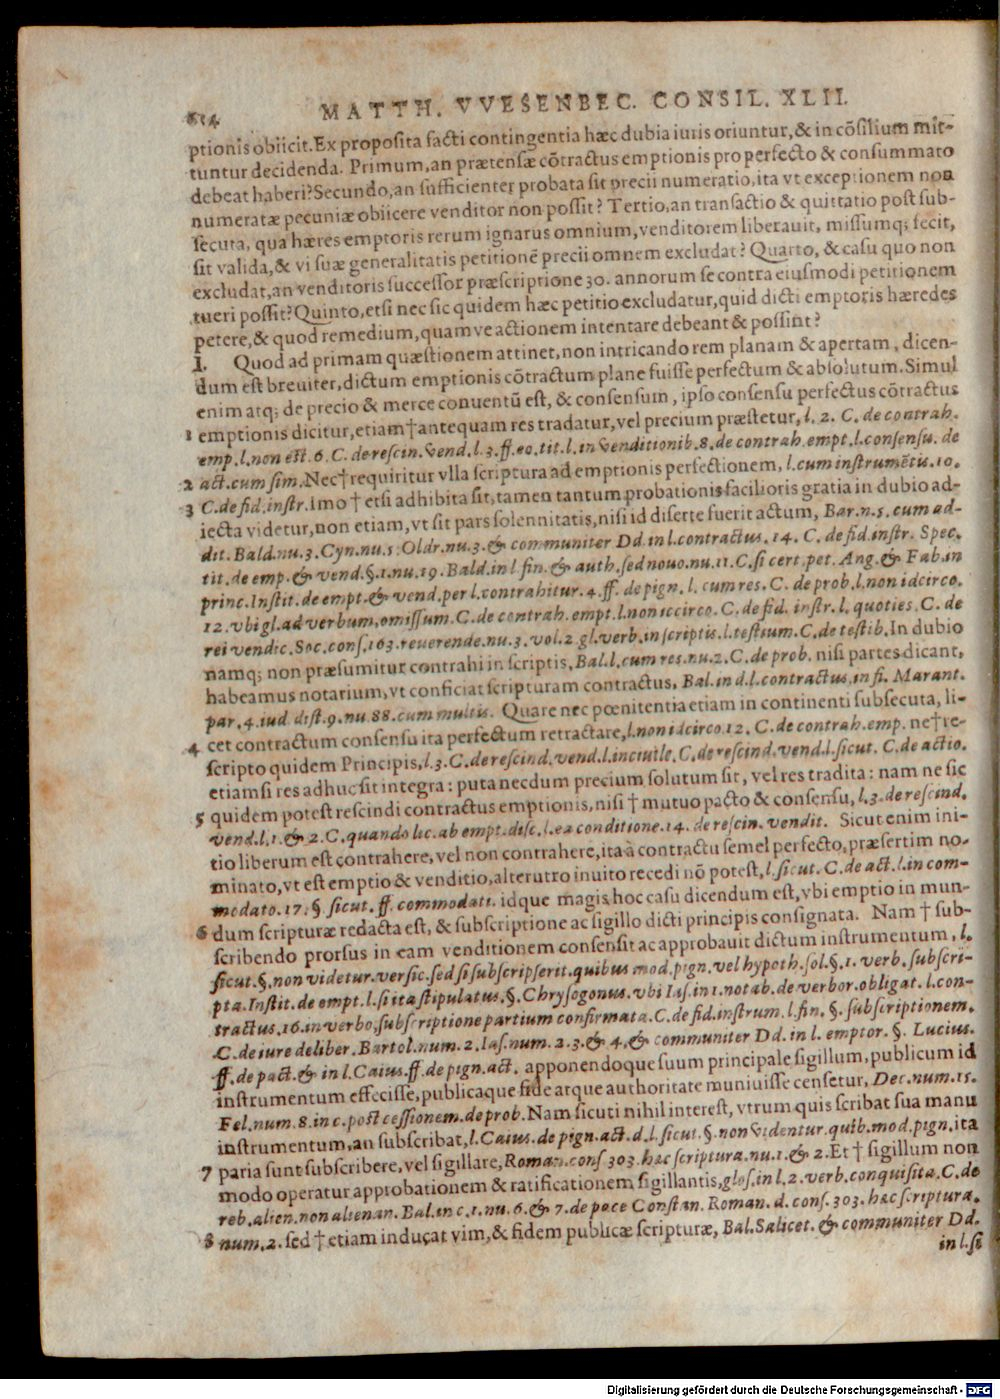 MATTH. VVESENBEC. CONSIL. XLII.
ptionis obiicit. Ex proposita facti contingentia hæc dubia iuris oriuntur, & in cõsilium mit-
tuntur decidenda. Primum, an prætensæ cõtractus emptionis pro perfecto & consummato
debeat haberi? Secundo, an sufficienter probata sit precii numeratio, ita vt exceptionem non
numeratæ pecuniæ obiicere venditor non possit? Tertio, an transactio & quittatio post sub-
secuta, qua hæres emptoris rerum ignarus omnium, venditorem liberauit, missumq; fecit,
sit valida, & vi suæ generalitatis petitionẽ precii omnem excludat? Quarto, & casu quo non
excludat, an venditoris successor præscriptione 30. annorum se contra eiusmodi petitionem
tueri possit? Quinto, etsi nec sic quidem hæc petitio excludatur, quid dicti emptoris hæredes
petere, & quod remedium, quamve actionem intentare debeant & possint?
I. Quod ad primam quæstionem attinet, non intricando rem planam & apertam, dicen-
dum est breuiter, dictum emptionis cõtractum plane fuisse perfectum & absolutum. Simul
enim atq; de precio & merce conuentũ est, & consensum, ipso consensu perfectus cõtractus
1 emptionis dicitur, etiam † antequam res tradatur, vel precium præstetur, l. 2. C. de contrah.
emp. l. non est. 6. C. de rescin. vend. l. 3. ff. eo. tit. l. in venditionib. 8. de contrah. empt. l. consensu. de
2 act. cum sim. Nec † requiritur vlla scriptura ad emptionis perfectionem, l. cum instrumẽtis. 10.
3 C. de fid. instr. Imo † etsi adhibita sit, tamen tantum probationis facilioris gratia in dubio ad-
iecta videtur, non etiam, vt sit pars solennitatis, nisi id diserte fuerit actum, Bar. n. 5. cum ad-
dit. Bald. nu. 3. Cyn. nu. 5. Oldr. nu. 3. & communiter Dd. in l. contractus. 14. C. de fid. instr. Spec.
tit. de emp. & vend. §. 1. nu. 19. Bald. in l. fin. & auth. sed nouo. nu. 11. C. si cert. pet. Ang. & Fab. in
princ. Instit. de empt. & vend. per l. contrahitur. 4. ff. de pign. l. cum res. C. de prob. l. non idcirco.
12. vbi gl. ad verbum, omissum. C. de contrah. empt. l. non iccirco. C. de fid. instr. l. quoties. C. de
rei vendic. Soc. cons. 163. reuerende. nu. 3. vol. 2. gl. verb. in scriptis. l. testium. C. de testib. In dubio
namq; non præsumitur contrahi in scriptis, Bal. l. cum res. nu. 2. C. de prob. nisi partes dicant,
habeamus notarium, vt conficiat scripturam contractus, Bal. in d. l. contractus, in fi. Marant.
par. 4. iud. dist. 9. nu. 88. cum multis. Quare nec pœnitentia etiam in continenti subsecuta, li-
4 cet contractum consensu ita perfectum retractare, l. non idcirco. 12. C. de contrah. emp. ne † re-
scripto quidem Principis, l. 3. C. de rescind. vend. l. inciuile. C. de rescind. vend. l. sicut. C. de actio.
etiamsi res adhuc sit integra: puta necdum precium solutum sit, vel res tradita: nam ne sic
5 quidem potest rescindi contractus emptionis, nisi † mutuo pacto & consensu, l. 3. de rescind.
vend. l. 1. & 2. C. quando lic. ab empt. disc. l. ea conditione. 14. de rescin. vendit. Sicut enim ini-
tio liberum est contrahere, vel non contrahere, ita à contractu semel perfecto, præsertim no-
minato, vt est emptio & venditio, alterutro inuito recedi nõ potest, l. sicut. C. de act. l. in com-
modato. 17. §. sicut. ff. commodati. idque magis hoc casu dicendum est, vbi emptio in mun-
6 dum scripturæ redacta est, & subscriptione ac sigillo dicti principis consignata. Nam † sub-
scribendo prorsus in eam venditionem consensit ac approbauit dictum instrumentum, l.
sicut. §. non videtur. versic. sed si subscripserit. quibus mod. pign. vel hypoth. sol. §. 1. verb. subscri-
pta. Instit. de empt. l. si ita stipulatus. §. Chrysogonus. vbi Ias. in 1. notab. de verbor. obligat. l. con-
tractus. 16. in verbo, subscriptione partium confirmata. C. de fid. instrum. l. fin. §. subscriptionem.
C. de iure deliber. Bartol. num. 2. Ias. num. 2. 3. & 4. & communiter Dd. in l. emptor. §. Lucius.
ff. de pact. & in l. Caius. ff. de pign. act. apponendoque suum principale sigillum, publicum id
instrumentum effecisse, publicaque fide atque authoritate muniuisse censetur, Dec. num. 15.
Fel. num. 8. in c. post cessionem. de prob. Nam sicuti nihil interest, vtrum quis scribat sua manu
instrumentum, an subscribat, l. Caius. de pign. act. d. l. sicut. §. non videntur. quib. mod. pign. ita
7 paria sunt subscribere, vel sigillare, Roman. cons. 303. hac scriptura. nu. 1. & 2. Et † sigillum non
modo operatur approbationem & ratificationem sigillantis, glos. in l. 2. verb. conquisita. C. de
reb. alien. non alienan. Bal. in c. 1. nu. 6. & 7. de pace Constan. Roman. d. cons. 303. hac scriptura.
8 num. 2. sed † etiam inducat vim, & fidem publicæ scripturæ, Bal. Salicet. & communiter Dd.
in l. si
Digitalisierung gefördert durch die Deutsche Forschungsgemeinschaft - DFG